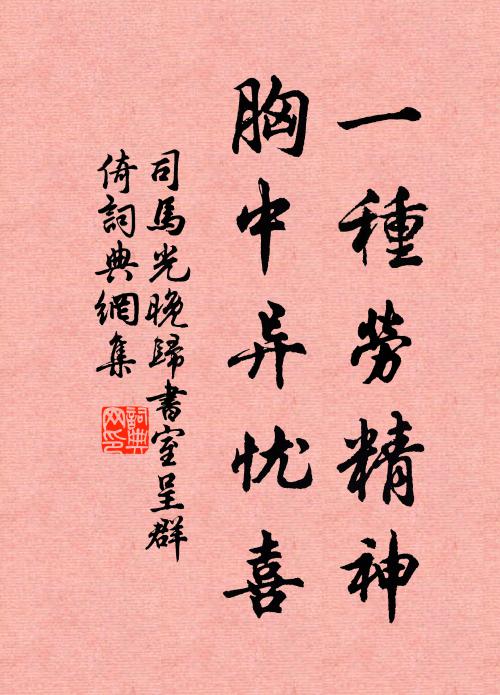 一種勞精神
胸中异忧喜
司馬光晚歸書室呈群
倚詞典網集
詞典
网印